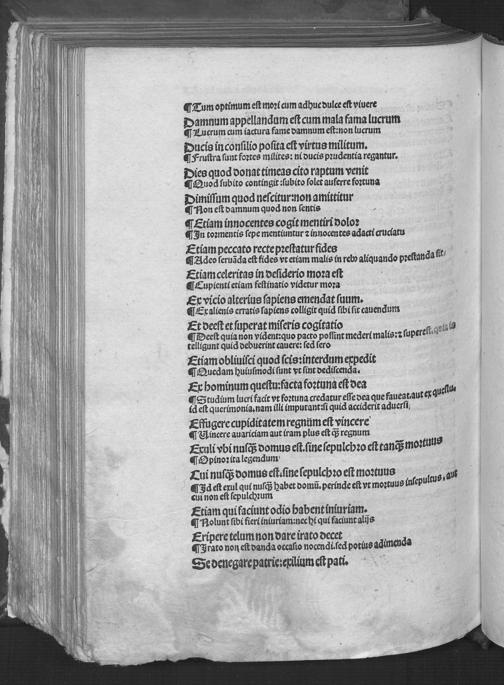 ¶Tum optimum est mori cum adhuc dulce est vivere
Damnum appellandum est cum mala fama lucrum
¶Lucrum cum iactura fame damnum est:non lucrum
Ducis in consilio posita est virtus militum.
¶Frustra sunt fortes milites: ni ducis prudentia regantur.
Dies quod donat timeas cito raptum venit
¶Quod subito contingit:subito solet auferre fortuna
Dimissum quod nescitur:non amittitur
¶Non est damnum quod non sentis
¶Etiam innocentes cogit mentiri dolor
¶In tormentis sepe mentiuntur ⁊ innocentes adacti cruciatu
Etiam peccato recte prestatur fides
¶Adeo seruāda est fides vt etiam malis in rebꝰ aliquando prestanda sit.
Etiam celeritas in desiderio mora est
¶Cupienti etiam festinatio videtur mora
Ex vicio alterius sapiens emendat suum.
¶Ex alienis erratis sapiens colligit quid sibi sit cauendum
Et deest et superat miseris cogitatio
¶Deest quia non vident:quo pacto possint mederi malis:⁊ superest.quia in
telligunt quid debuerint cauere: sed sero
Etiam obliuisci quod scis:interdum expedit
¶Quedam huiusmodi sunt vt sint dediscenda.
Ex hominum questu:facta fortuna est dea
¶Studium lucri facit vt fortuna credatur esse dea que faueat.aut ex questu.
id est querimonia.nam illi imputant:si quid acciderit aduersi.
Effugere cupiditatem regnum est vincere
¶Uincere auariciam aut iram plus est ꝙ̃ regnum
Exuli vbi nusꝙ̃ domus est.sine sepulchro est tanꝙ̃ mortuus
¶Opinor ita legendum
Cui nusꝙ̃ domus est.sine sepulchro est mortuus
¶Id est exul qui nusꝙ̃ habet domū.perinde est vt mortuus insepultus, aut
cui non est sepulchrum
Etiam qui faciunt odio habent iniuriam.
¶Nolunt sibi fieri iniuriam:nec hi qui faciunt alijs
Eripere telum non dare irato decet
¶Irato non est danda occasio nocendi.sed potius adimenda
Se denegare patrie:exilium est pati.